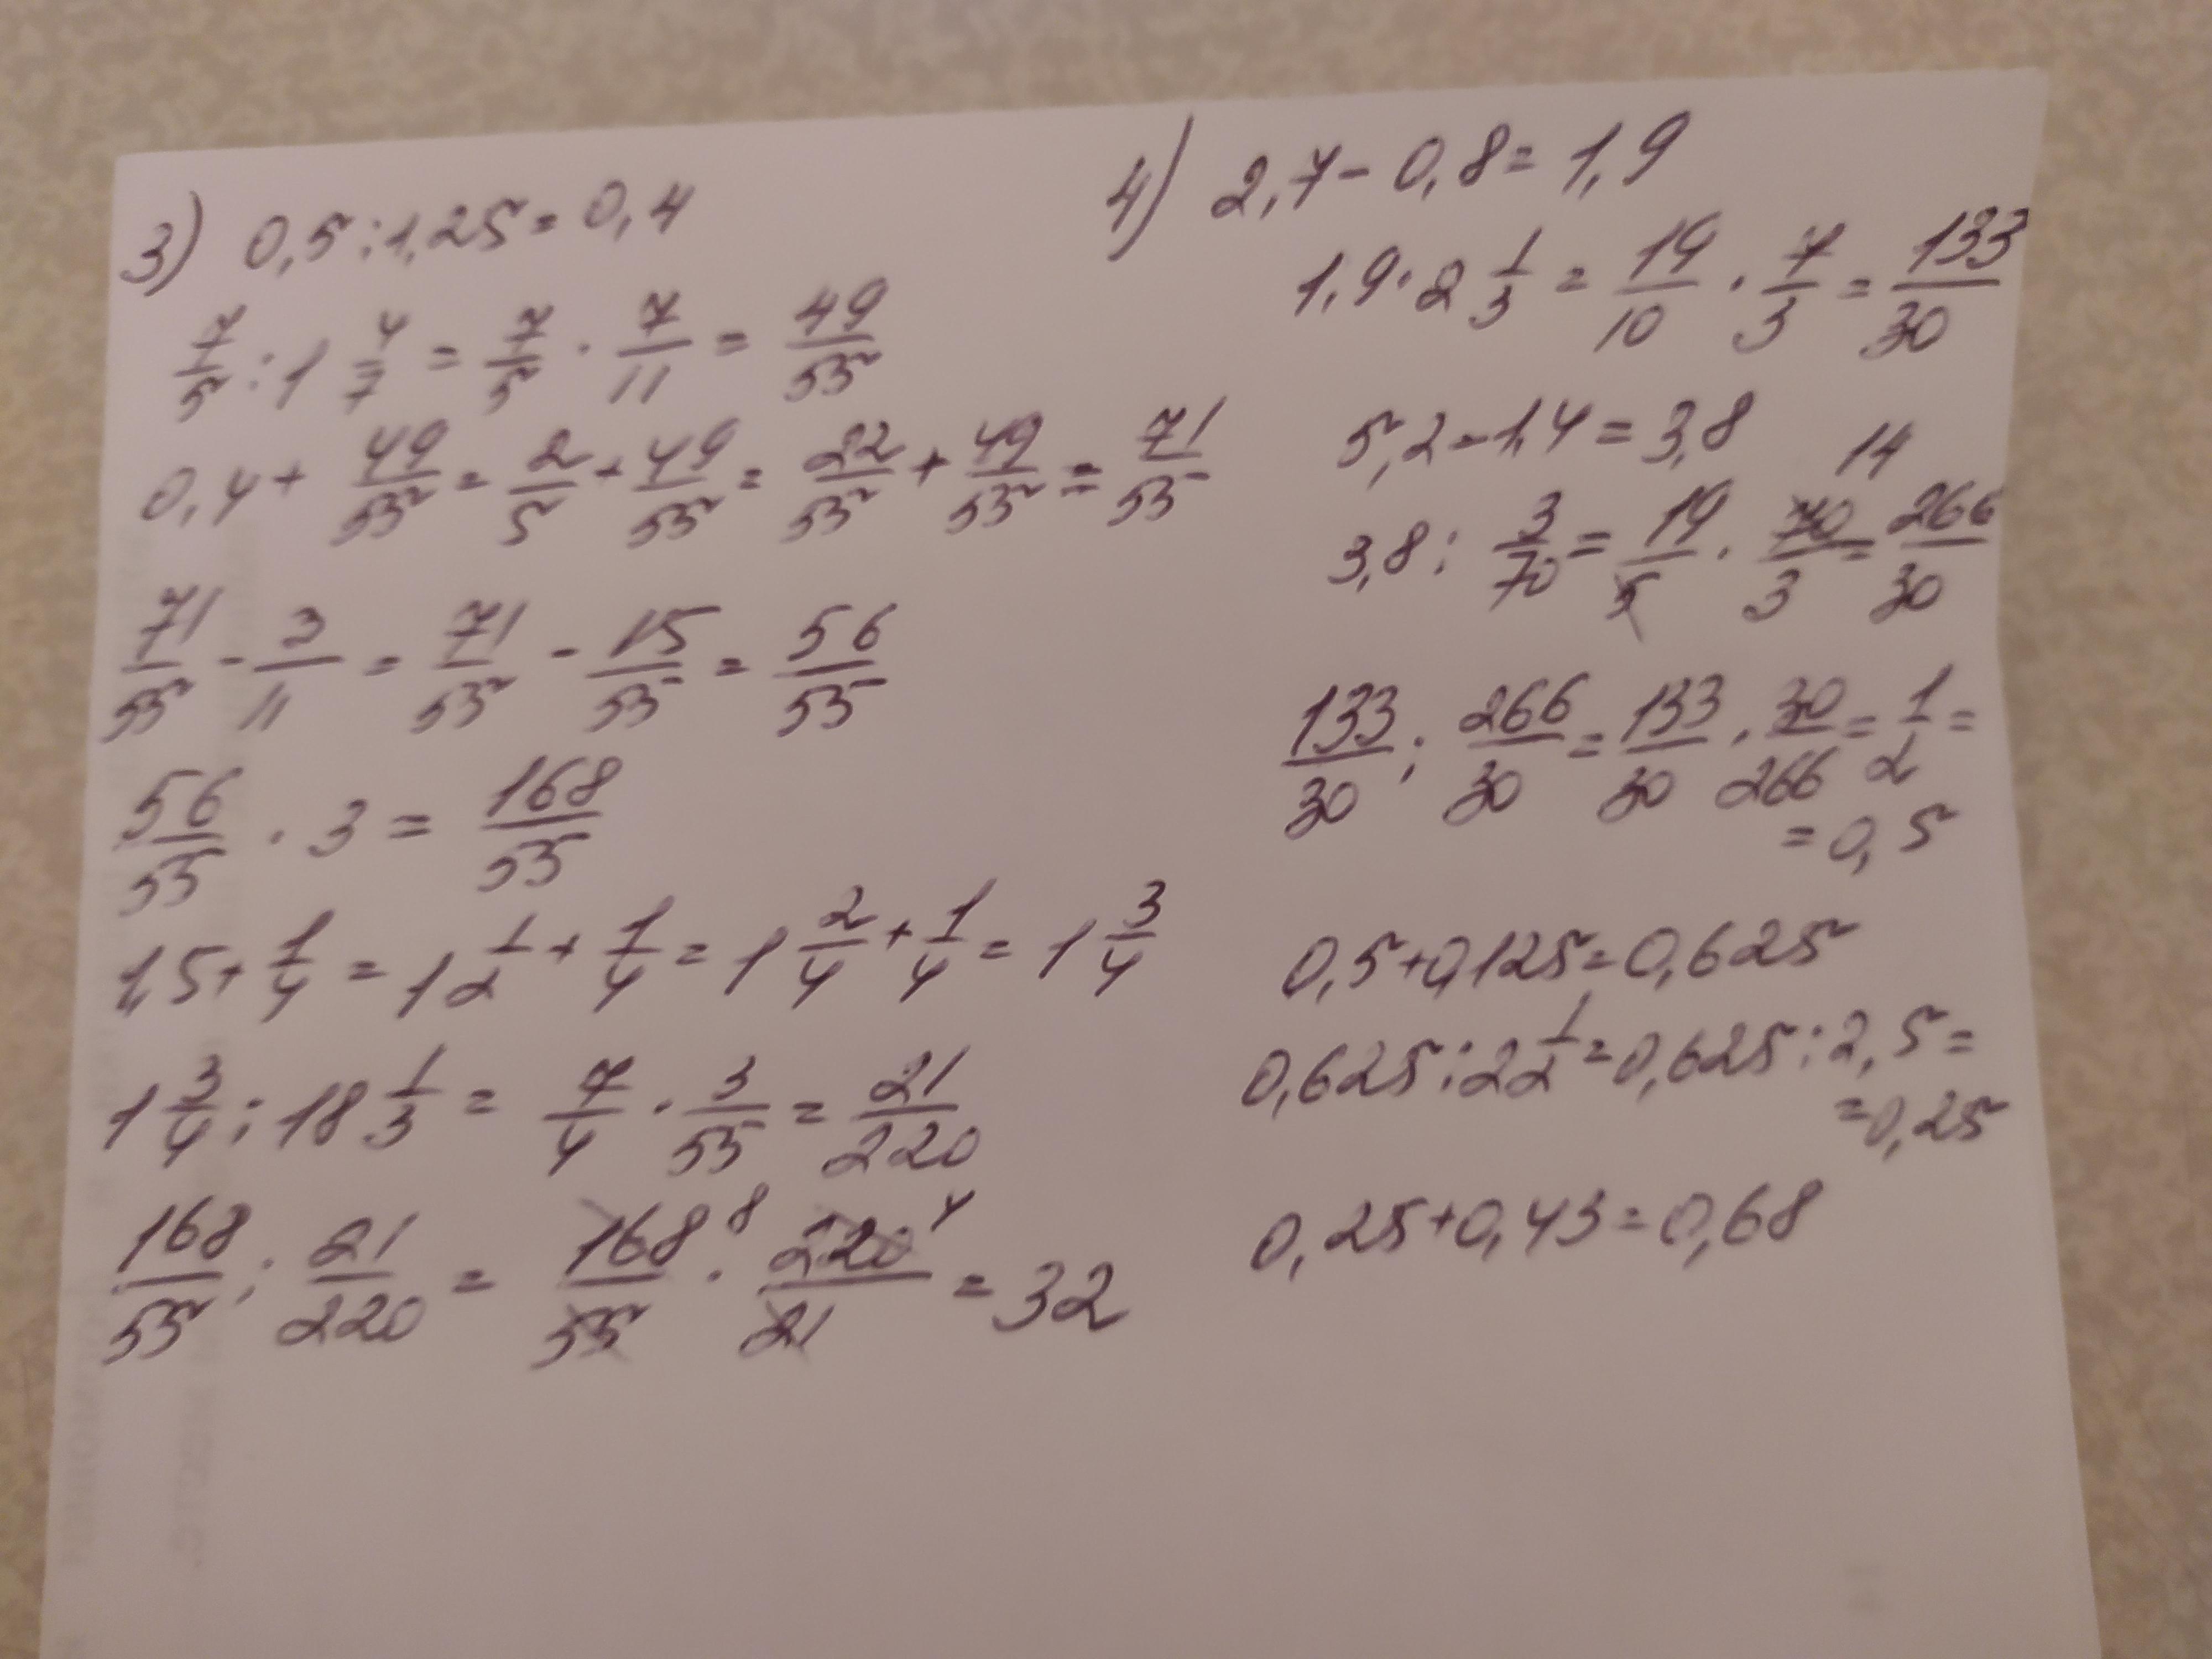 3) 0,5:1,25=0,4
7/5 : 1 4/7 = 7/5 · 7/11 = 49/55
0,4+ 49/55 = 2/5 + 49/55 = 22/55 + 49/55 = 71/55
71/55 - 3/11 = 71/55 - 15/55 = 56/55
56/55 · 3 = 168/55
1,5+ 1/4 = 1 1/2 + 1/4 = 1 2/4 + 1/4 = 1 3/4
1 3/4 : 18 1/3 = 7/4 · 3/55 = 21/220
168/55 : 21/220 = 168 8/55 · 220 4/21 = 32
4) 2,7-0,8=1,9
1,9·2 1/3 = 19/10 · 7/3 = 133/30
5,2-1,4=3,8
14
3,8: 3/70 = 19/5 · 70/3 = 266/30
133/30 : 266/30 = 133/30 · 30/266 = 1/2 =
=0,5
0,5+0,125=0,625
0,625:2 1/2 =0,625:2,5=
=0,25
0,25+0,43=0,68